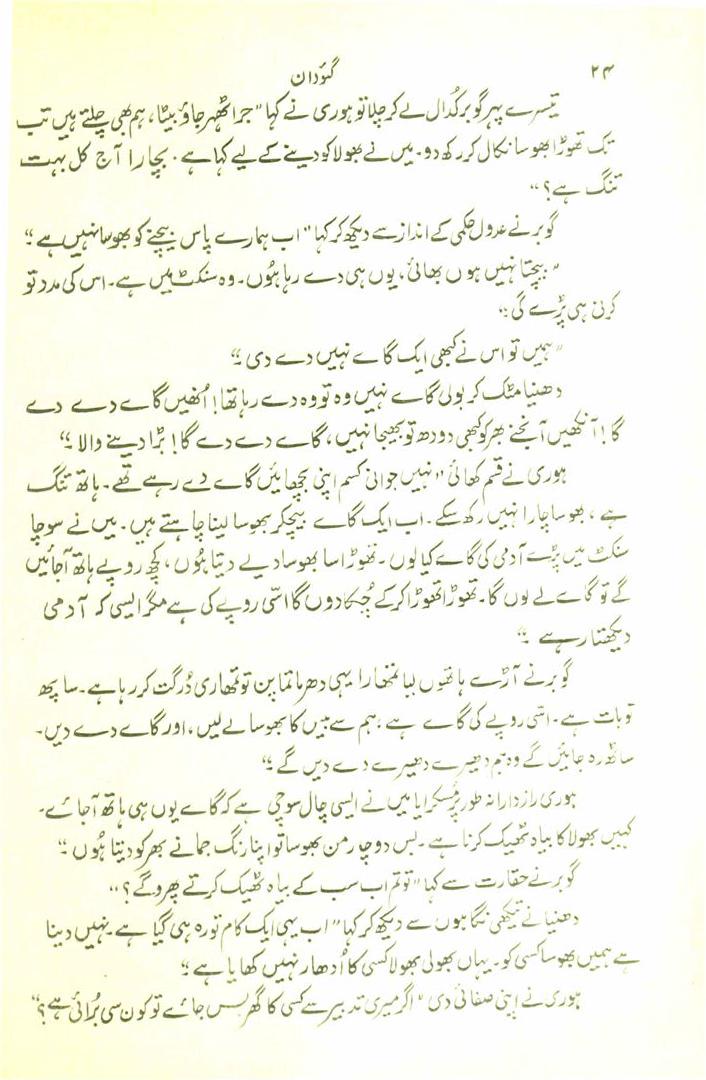 ۲۴
گئودان
تیسرے پہر گوبر کُدال لے کر چلا تو ہوری نے کہا "جرا ٹھہر جاؤ بیٹا، ہم بھی چلتے ہیں تب
تک تھوڑا بھوسا نکال کر رکھ دو۔ میں نے بھولا کو دینے کے لیے کہا ہے۔ بچارا آج کل بہت
تنگ ہے؟"
گوبر نے عدول حکمی کے انداز سے دیکھ کر کہا "اب ہمارے پاس بیچنے کو بھوسا نہیں ہے۔"
"بیچتا نہیں ہوں بھائی، یوں ہی دے رہا ہُوں۔ وہ سنکٹ میں ہے۔ اس کی مدد تو
کرنی ہی پڑے گی۔"
"ہمیں تو اس نے کبھی ایک گاے نہیں دے دی۔"
دھنیا مٹک کر بولی گاے نہیں وہ تو وہ دے رہا تھا! اُنھیں گاے دے دے
گا! آنکھیں آنجنے بھر کو کبھی دودھ تو بھیجا نہیں، گاے دے دے گا! بڑا دینے والا۔"
ہوری نے قسم کھائی "نہیں جوانی کسم اپنی پچھائیں گاے دے رہے تھے۔ ہاتھ تنگ
ہے، بھوسا چارا نہیں رکھ سکے۔ اب ایک گاے بیچکر بھوسا لینا چاہتے ہیں۔ میں نے سوچا
سنکٹ میں پڑے آدمی کی گاے کیا لوں۔ تھوڑا سا بھوسا دیے دیتا ہُوں، کچھ روپے ہاتھ آجائیں
گے تو گاے لے لوں گا۔ تھوڑا تھوڑا کرکے چُکا دوں گا اسّی روپے کی ہے مگر ایسی کہ آدمی
دیکھتا رہے۔"
گوبر نے آڑے ہاتھوں لیا تمھارا یہی دھرماتما پن تو تمھاری دُرگت کر رہا ہے۔ ساپھ
تو بات ہے۔ اسّی روپے کی گاے ہے، ہم سے بیس کا بھوسا لے لیں، اور گاے دے دیں۔
ساٹھ رہ جائیں گے وہ ہم دھیرے دھیرے دے دیں گے۔"
ہوری رازدارانہ طور پر مُسکرایا میں نے ایسی چال سوچی ہے کہ گاے یوں ہی ہاتھ آجاے۔
کہیں بھولا کا بیاہ ٹھیک کرنا ہے۔ بس دوچار من بھوسا تو اپنا رنگ جمانے بھر کو دیتا ہُوں۔"
گوبر نے حقارت سے کہا "تو تم اب سب کے بیاہ ٹھیک کرتے پھروگے؟"
دھنیا نے تیکھی نگاہوں سے دیکھ کر کہا "اب یہی ایک کام تو رہ ہی گیا ہے۔ نہیں دینا
ہے ہمیں بھوسا کسی کو۔ یہاں بھولی بھولا کسی کا اُدھار نہیں کھایا ہے۔"
ہوری نے اپنی صفائی دی "اگر میری تدبیر سے کسی کا گھر بس جاے تو کون سی بُرائی ہے؟"